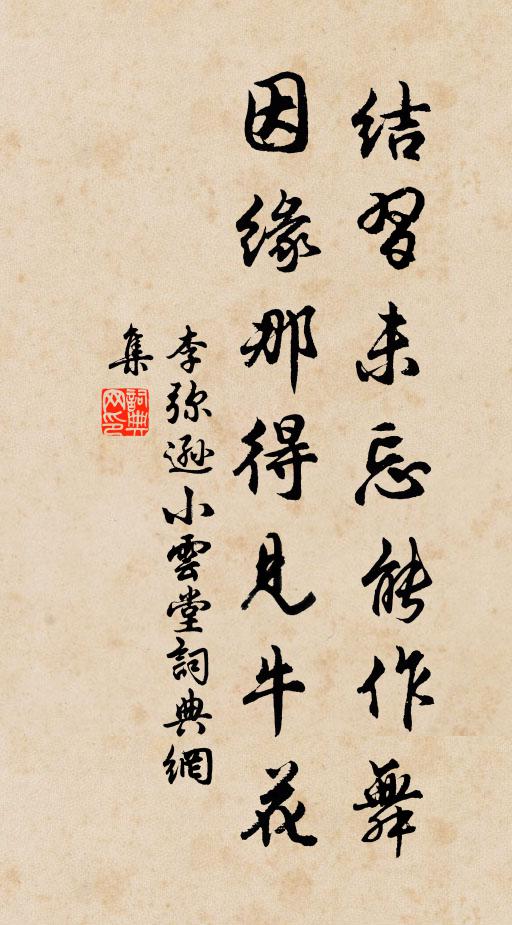 结习未忘能作舞
因缘那得见牛花
李弥逊小雲堂詞典網
集
詞典网印